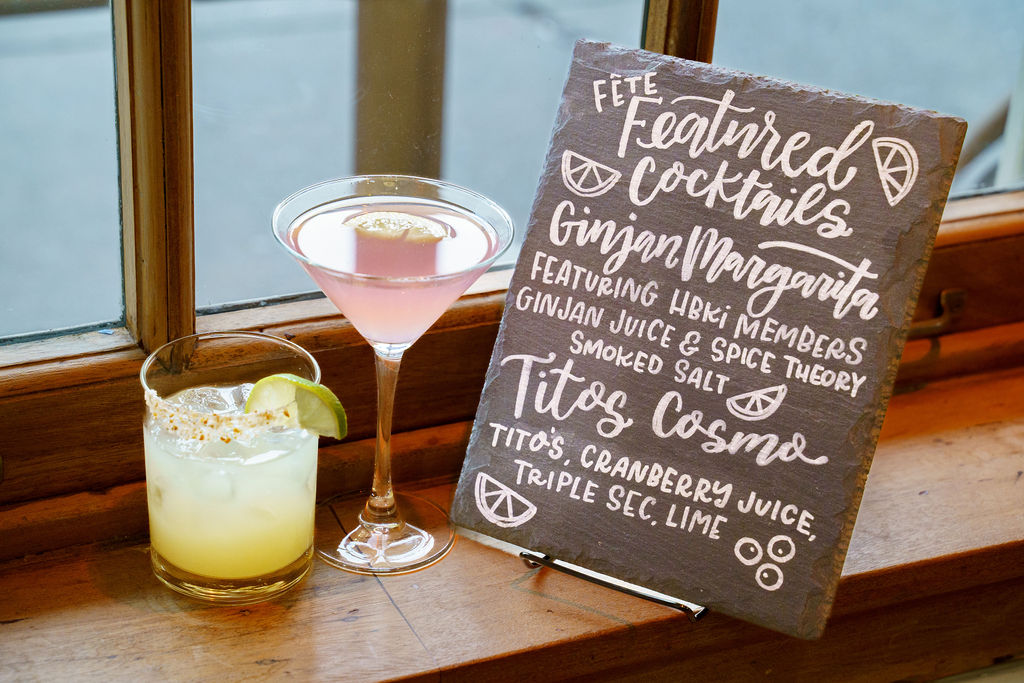 FÊTE
Featured
Cocktails
Ginjan Margarita
FEATURING HBKi MEMBERS
GINJAN JUICE & SPICE THEORY
SMOKED SALT
Titos Cosmo
TITO'S, CRANBERRY JUICE,
TRIPLE SEC, LIME